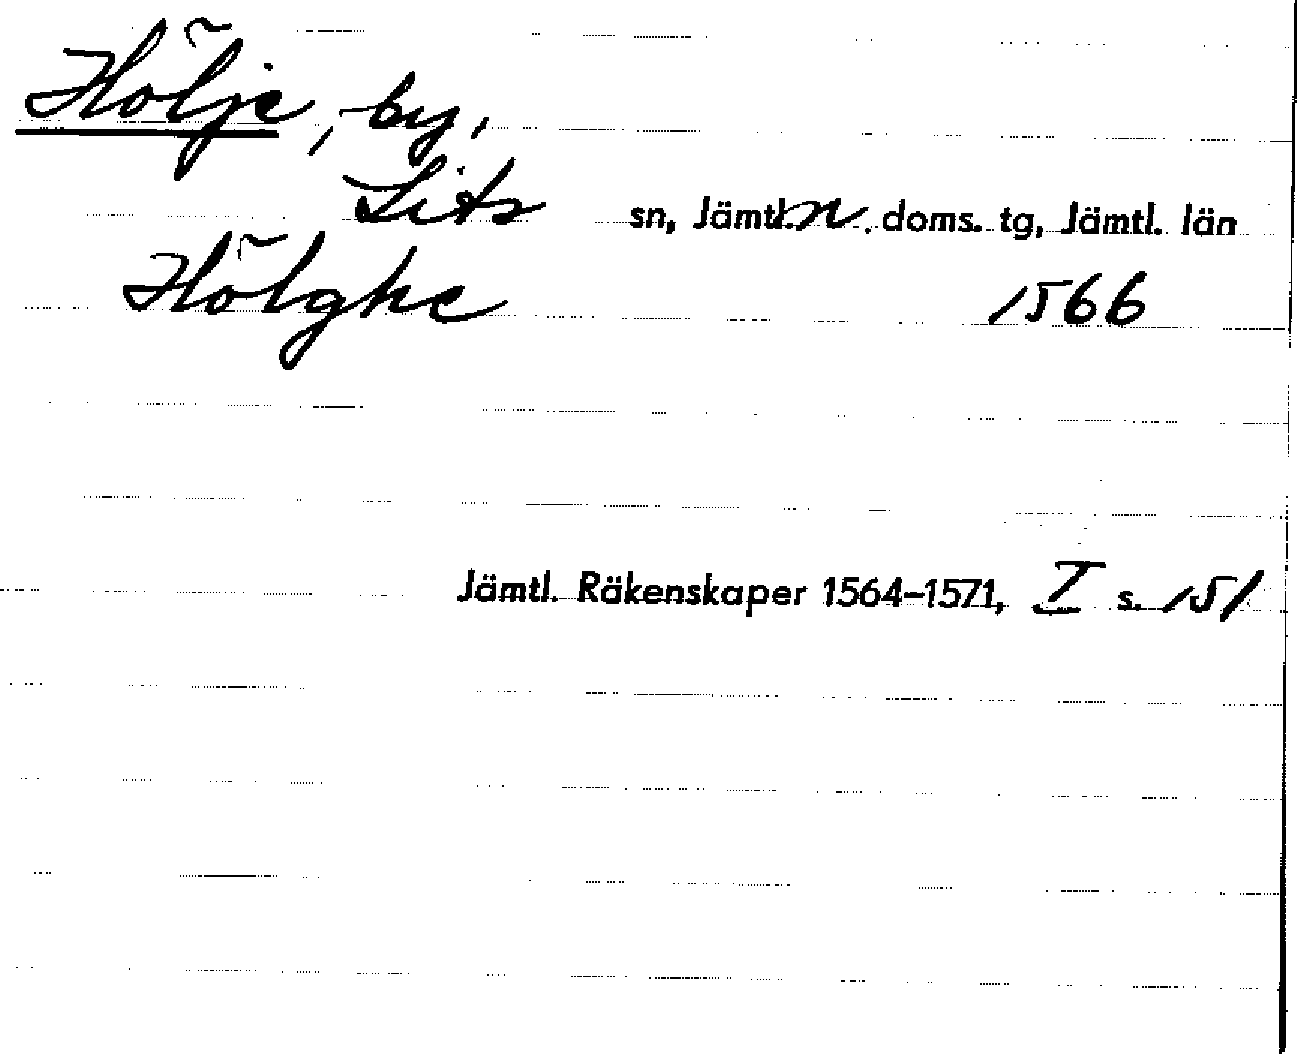 Hölje, by,
Lits sn, Jämtl. n. doms. tg, Jämtl. län
Hölghe 1566
Jämtl. Räkenskaper 1564–1571, I s. 151